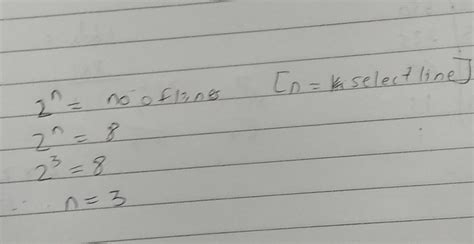 2ⁿ = no of lines [n = select line]
2ⁿ = 8
2³ = 8
∴ n = 3